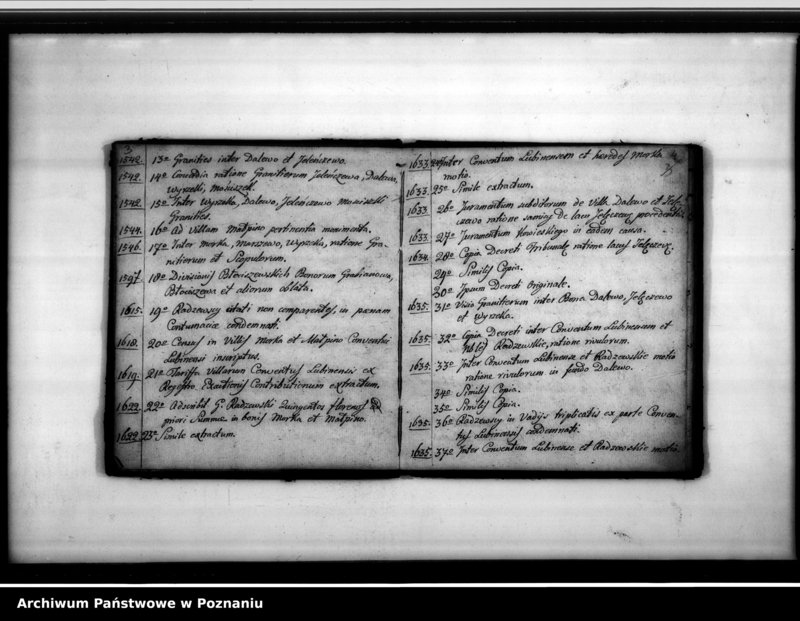 3
1542. 13o Granities inter Dalewo et Jeleńczewo.
1542. 14o Concordia ratione Granitierum Jeleńczewa, Dalewa,
Wyrzeki, Mościszek.
1542. 15o Inter Wyrzeka, Dalewo, Jeleńczewo Mościszki
Granities.
1544. 16o Ad Villam Małpino pertinentia
1546. 17o Inter Morka, Mórszewo, Wyrzeka, ratione Gra-
nitierum et Scopulorum.
1597. 18o Divisionis Błociszewskich Bonorum Grabianowa,
Błociszewa et aliorum oblata.
1615. 19o Radzewscy citati non comparentes, in pænam
Contumaciæ condemnati.
1618. 20o Census in Villis Morka et Małpino Conventui
Lubinensi inscriptus.
1619. 21o Tariffa Villarum Conventus Lubinensis ex
Regestro Exactionis Contributionum extractum.
1622. 22o G. Radzewski Quingentos florenos
Summæ in bonis Morka et Małpino.
1622. 23o Simile extractum.
1633. 24o Inter Conventum Lubinensem et heredes Morka
motio.
1633. 25o Simile extractum.
1633. 26o Juramentum subditorum de Villa Dalewo et Jeleń-
czewo ratione de lacu procedentis
1633. 27o Juramentum Iłowieckiego in eadem causa.
1634. 28o Copia Decreti Tribunalis ratione lacus
29o Similis Copia.
30o Ipsum Decret Originale.
1635. 31o Visio Granitierum inter Bona Dalewo, Jelęczewo
et Wyrzeka.
1635. 32o Copia Decreti inter Conventum Lubinensem et
Nobles Radzewskie, ratione rivulorum.
1635. 33o Inter Conventum Lubinense et Radzewskie motio
ratione rivulorum in fundo Dalewo.
34o Similis Copia.
35o Similis Copia.
1635. 36o Radzewscy in Vadiis triplicatis ex parte Conven-
tus Lubinensis condemnati.
1635. 37o Inter Conventum Lubinense et Radzewskie motio.
Archiwum Państwowe w Poznaniu